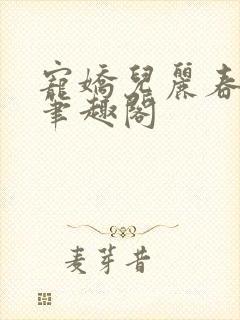 寵嬌兒麗春
筆趣閣
麦芽昔